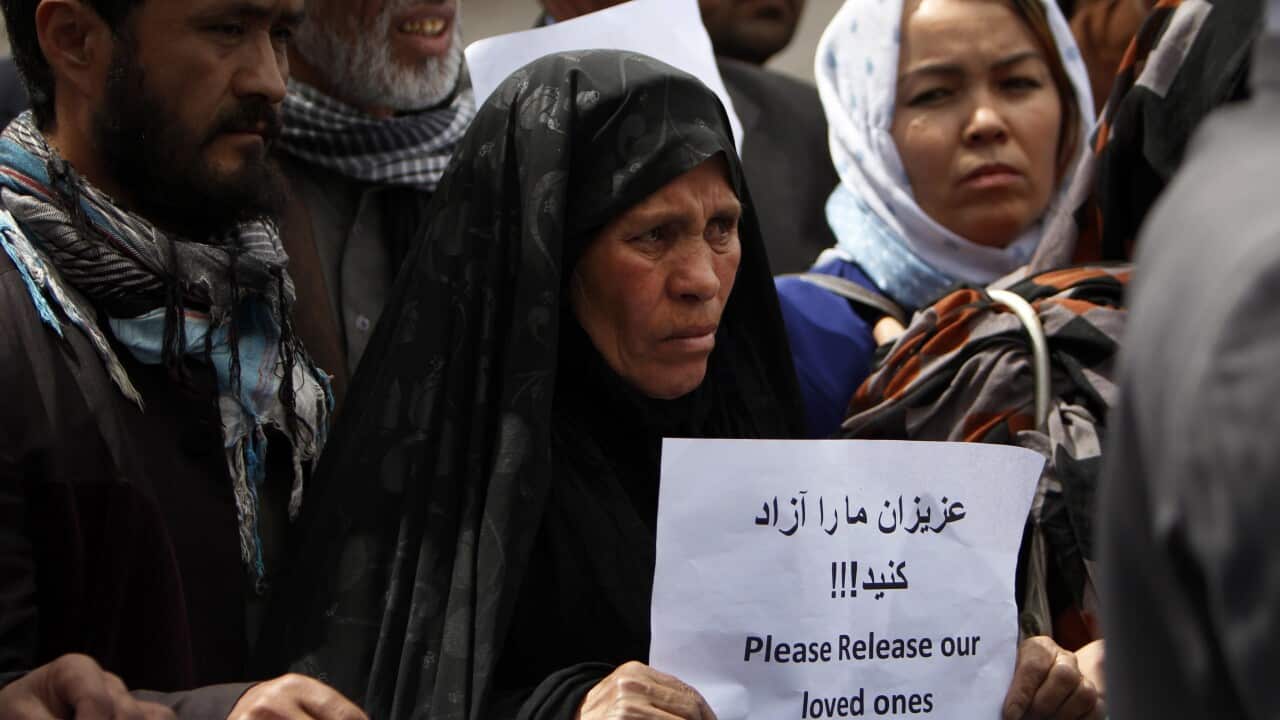 عزیزان مارا آزاد
کنید!!!
Please Release our
loved ones